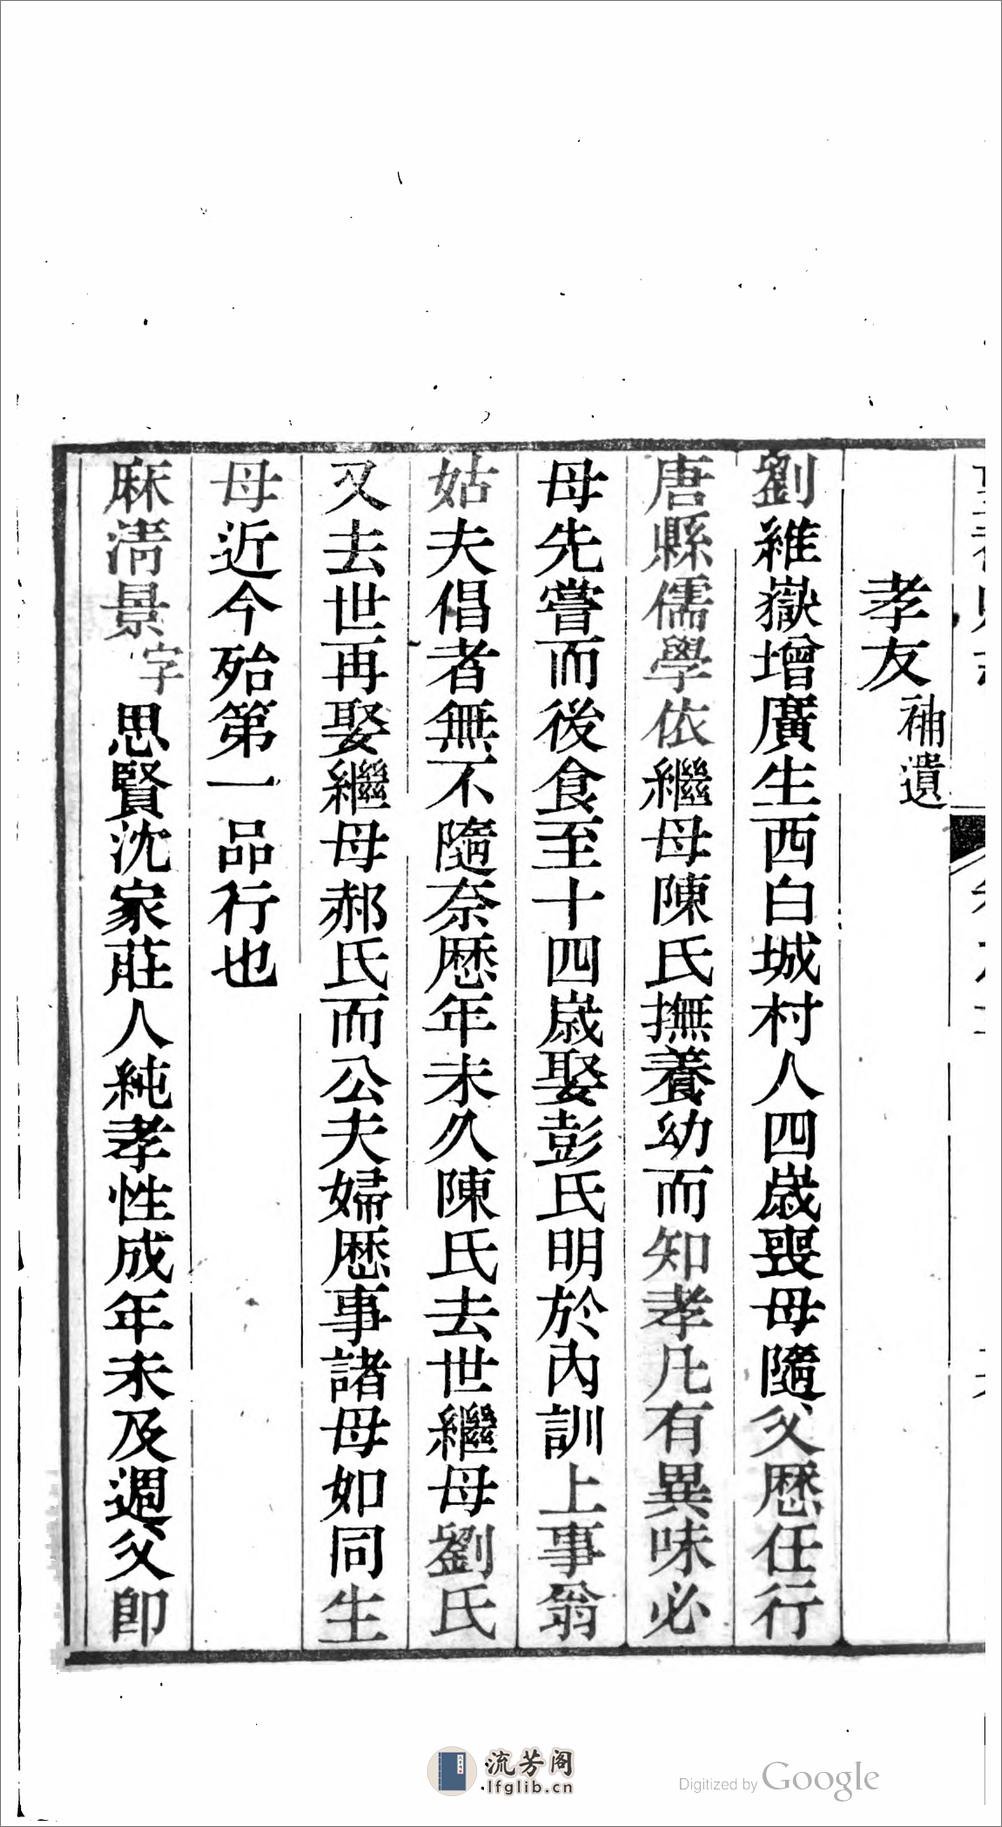 孝友補遺
劉維嶽增廣生西白城村人四歲喪母隨父歷任行
唐縣儒學依繼母陳氏撫養幼而知孝凡有異味必
母先嘗而後食至十四歲娶彭氏明於內訓上事翁
姑夫倡者無不隨奈歷年未久陳氏去世繼母劉氏
又去世再娶繼母郝氏而公夫婦歷事諸母如同生
母近今殆第一品行也
麻清景字思賢沈家莊人純孝性成年未及週父卽
流芳阁
lfglib.cn
Digitized by Google